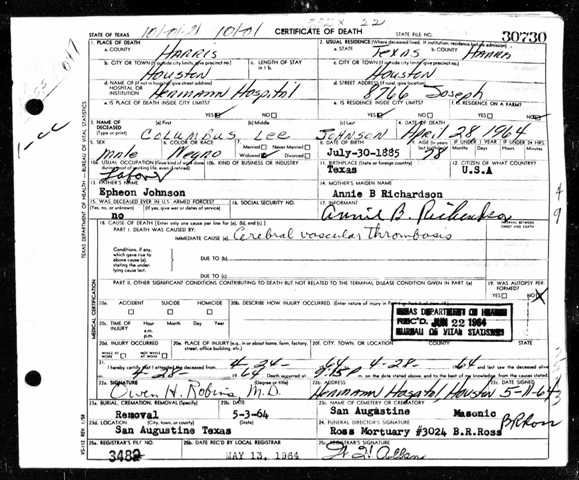 STATE OF TEXAS CERTIFICATE OF DEATH STATE FILE NO. 30730
1. PLACE OF DEATH 2. USUAL RESIDENCE (Where deceased lived. If institution, residence before admission)
a. COUNTY Harris a. STATE Texas b. COUNTY Harris
b. CITY OR TOWN (If outside city limits, give precinct no.) c. LENGTH OF STAY in 1b c. CITY OR TOWN (If outside city limits, give precinct no.)
Houston Houston
d. NAME OF (If not in hospital, give street address) HOSPITAL OR INSTITUTION Hermann Hospital d. STREET ADDRESS (If rural, give location) 8766 Joseph
e. IS PLACE OF DEATH INSIDE CITY LIMITS? YES NO e. IS RESIDENCE INSIDE CITY LIMITS? YES NO f. IS RESIDENCE ON A FARM? YES NO
3. NAME OF DECEASED (Type or print) (a) First (b) Middle (c) Last 4. DATE OF DEATH
Columbus Lee Johnson April 28 1964
5. SEX 6. COLOR OR RACE 7. Married Never Married Widowed Divorced 8. DATE OF BIRTH 9. AGE (In years IF UNDER 1 YEAR IF UNDER 24 HRS.
male Negro July-30-1885 78
10a. USUAL OCCUPATION (Give kind of work done during most of working life, even if retired) 10b. KIND OF BUSINESS OR INDUSTRY 11. BIRTHPLACE (State or foreign country) 12. CITIZEN OF WHAT COUNTRY?
Labor Texas U.S.A
13. FATHER'S NAME 14. MOTHER'S MAIDEN NAME
Epheon Johnson Annie B Richardson
15. WAS DECEASED EVER IN U.S. ARMED FORCES? 16. SOCIAL SECURITY NO. 17. INFORMANT
(Yes, no, or unknown) (If yes, give war or dates of service)
no Annie B. Richardson
18. CAUSE OF DEATH (Enter only one cause per line for (a), (b), and (c).) INTERVAL BETWEEN ONSET AND DEATH
PART I. DEATH WAS CAUSED BY:
IMMEDIATE CAUSE (a) Cerebral vascular thrombosis
Conditions, if any, which gave rise to above cause (a), stating the underlying cause last.
DUE TO (b)
DUE TO (c)
PART II. OTHER SIGNIFICANT CONDITIONS CONTRIBUTING TO DEATH BUT NOT RELATED TO THE TERMINAL DISEASE CONDITION GIVEN IN PART I (a) 19. WAS AUTOPSY PERFORMED?
YES NO
20a. ACCIDENT SUICIDE HOMICIDE 20b. DESCRIBE HOW INJURY OCCURRED. (Enter nature of injury in Part I or Part II of item 18.)
20c. TIME OF INJURY Hour Month Day Year
TEXAS DEPARTMENT OF HEALTH
REC'D. JUN 22 1964
BUREAU OF VITAL STATISTICS
20d. INJURY OCCURRED 20e. PLACE OF INJURY (e.g., in or about home, farm, factory, street, office building, etc.) 20f. CITY, TOWN, OR LOCATION COUNTY STATE
WHILE AT WORK NOT WHILE AT WORK
21. I hereby certify that I attended the deceased from 4-24- 64 to 4-28- 64 and last saw the deceased alive
on 4-28 1964 Death occurred at m. on the date stated above, and to the best of my knowledge, from the causes stated.
22a. SIGNATURE (Degree or title) 22b. ADDRESS 22c. DATE SIGNED
Owen H. Robins M.D. Hermann Hospital Houston 5-11-64
23a. BURIAL, CREMATION, REMOVAL (Specify) 23b. DATE 23c. NAME OF CEMETERY OR CREMATORY
Removal 5-3-64 San Augustine Masonic
23d. LOCATION (City, town, or county) (State) 24. FUNERAL DIRECTOR'S SIGNATURE B.R.Ross
San Augustine Texas Ross Mortuary #3024 B.R.Ross
25a. REGISTRAR'S FILE NO. 25b. DATE REC'D BY LOCAL REGISTRAR 25c. REGISTRAR'S SIGNATURE
3482 MAY 13, 1964
TEXAS DEPARTMENT OF HEALTH — BUREAU OF VITAL STATISTICS
MEDICAL CERTIFICATION